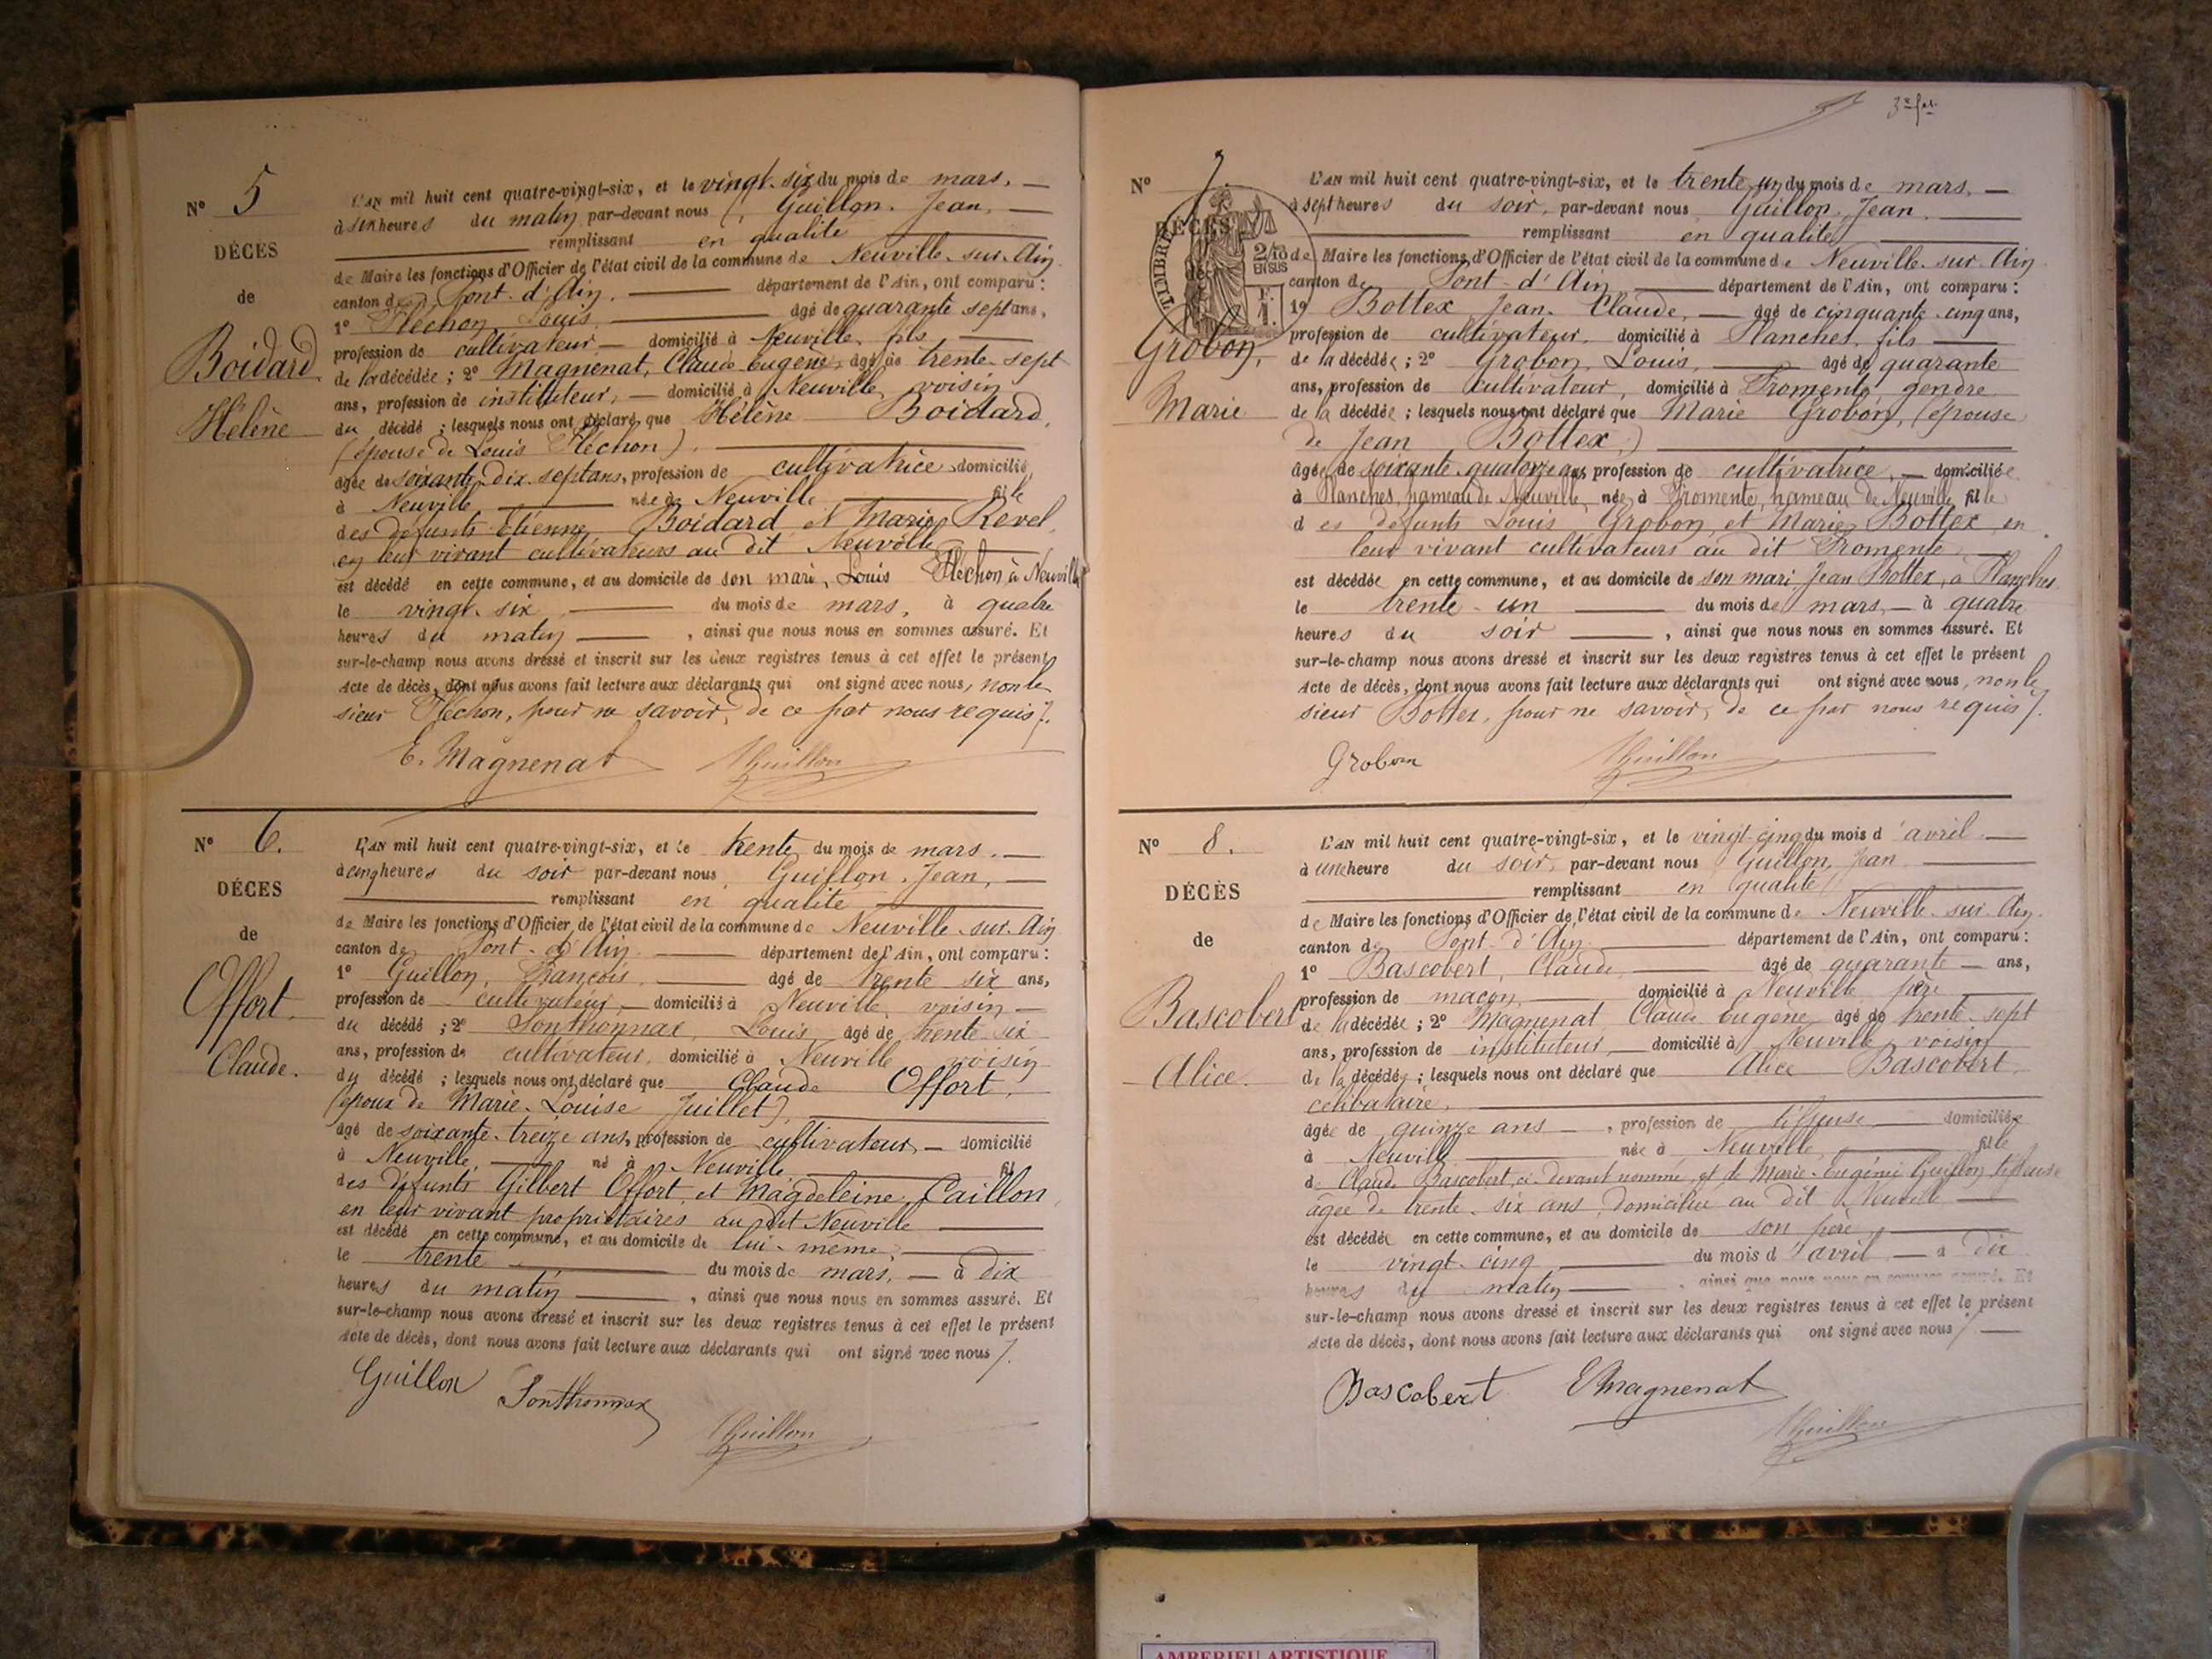 N° 5
DÉCÈS
de
Boidard
Hélène
L'AN mil huit cent quatre-vingt-six, et le vingt-six du mois de mars, —
à six heures du matin par-devant nous Guillon, Jean, —
remplissant en qualité
de Maire les fonctions d'Officier de l'état civil de la commune de Neuville-sur-Ain
canton de Pont-d'Ain, — département de l'Ain, ont comparu :
1° Fléchon Louis, — âgé de quarante sept ans,
profession de cultivateur — domicilié à Neuville, fils —
de la décédée ; 2° Magnenat, Claude Eugène, âgé de trente-sept
ans, profession de instituteur, — domicilié à Neuville, voisin
du décédé ; lesquels nous ont déclaré que Hélène Boidard,
(épouse de Louis Fléchon), —
âgée de soixante-dix-sept ans, profession de cultivatrice domicilié
à Neuville — née à Neuville — fille
des défunts Etienne Boidard et Marie Revel,
en leur vivant cultivateurs au dit Neuville
est décédé en cette commune, et au domicile de son mari, Louis Fléchon à Neuville
le vingt-six — du mois de mars, à quatre
heures du matin —, ainsi que nous nous en sommes assuré. Et
sur-le-champ nous avons dressé et inscrit sur les deux registres tenus à cet effet le présent
Acte de décès, dont nous avons fait lecture aux déclarants qui ont signé avec nous, non le
sieur Fléchon, pour ne savoir, de ce par nous requis /.
E. Magnenat Guillon
N° 6.
DÉCES
de
Offort
Claude.
L'AN mil huit cent quatre-vingt-six, et le trente du mois de mars. —
à cinq heures du soir par-devant nous Guillon, Jean, —
remplissant en qualité
de Maire les fonctions d'Officier de l'état civil de la commune de Neuville-sur-Ain
canton de Pont-d'Ain. — département de l'Ain, ont comparu :
1° Guillon, François, — âgé de trente six ans,
profession de cultivateur, — domicilié à Neuville, voisin —
du décédé ; 2° Ponthonnax, Louis, âgé de trente-six
ans, profession de cultivateur, domicilié à Neuville voisin
du décédé ; lesquels nous ont déclaré que Claude Offort,
(époux de Marie-Louise Juillet), —
âgé de soixante-treize ans, profession de cultivateur, — domicilié
à Neuville, — né à Neuville — fil
des défunts Gilbert Offort, et Magdeleine Caillon,
en leur vivant propriétaires au dit Neuville —
est décédé en cette commune, et au domicile de lui-même, —
le trente — du mois de mars, — à dix
heures du matin —, ainsi que nous nous en sommes assuré. Et
sur-le-champ nous avons dressé et inscrit sur les deux registres tenus à cet effet le présent
Acte de décès, dont nous avons fait lecture aux déclarants qui ont signé avec nous /.
Guillon Ponthonnax
Guillon
N° 7.
DÉCÈS
de
TIMBRE
2/10
EN SUS
Grobon,
Marie
L'AN mil huit cent quatre-vingt-six, et le trente un du mois de mars, —
à sept heures du soir, par-devant nous Guillon, Jean, —
remplissant en qualité
de Maire les fonctions d'Officier de l'état civil de la commune de Neuville-sur-Ain
canton de Pont-d'Ain — département de l'Ain, ont comparu :
1° Bottex, Jean-Claude, — âgé de cinquante-cinq ans,
profession de cultivateur, domicilié à Planches, fils —
de la décédée ; 2° Grobon, Louis, — âgé de quarante
ans, profession de cultivateur, domicilié à Fromente, gendre
de la décédée ; lesquels nous ont déclaré que Marie Grobon, (épouse
de Jean Bottex,) —
âgée de soixante-quatorze ans, profession de cultivatrice, — domiciliée
à Planches, hameau de Neuville, née à Fromente, hameau de Neuville, fille
des défunts Louis Grobon, et Marie Bottex, en
leur vivant cultivateurs au dit Fromente, —
est décédée en cette commune, et au domicile de son mari Jean Bottex, à Planches
le trente-un — du mois de mars, — à quatre
heures du soir —, ainsi que nous nous en sommes assuré. Et
sur-le-champ nous avons dressé et inscrit sur les deux registres tenus à cet effet le présent
Acte de décès, dont nous avons fait lecture aux déclarants qui ont signé avec nous, non le
sieur Bottex, pour ne savoir, de ce par nous requis /.
Grobon Guillon
N° 8.
DÉCÈS
de
Bascobert
Alice.
L'AN mil huit cent quatre-vingt-six, et le vingt-cinq du mois d'avril —
à une heure du soir, par-devant nous Guillon, Jean —
remplissant en qualité
de Maire les fonctions d'Officier de l'état civil de la commune de Neuville-sur-Ain.
canton de Pont-d'Ain — département de l'Ain, ont comparu :
1° Bascobert, Claude, — âgé de quarante — ans,
profession de maçon, — domicilié à Neuville père
de la décédée ; 2° Magnenat Claude Eugène âgé de trente-sept
ans, profession de instituteur, — domicilié à Neuville, voisin
de la décédée ; lesquels nous ont déclaré que Alice Bascobert,
célibataire, —
âgée de quinze ans —, profession de tisseuse domiciliée
à Neuville — née à Neuville — fille
de Claude Bascobert, ci-devant nommé, et de Marie-Eugénie Guillon, tisseuse
âgée de trente-six ans, domiciliée au dit Neuville —
est décédée en cette commune, et au domicile de son père, —
le vingt-cinq — du mois d'avril — à dix
heures du matin —, ainsi que nous nous en sommes assuré. Et
sur-le-champ nous avons dressé et inscrit sur les deux registres tenus à cet effet le présent
Acte de décès, dont nous avons fait lecture aux déclarants qui ont signé avec nous /. —
Bascobert E Magnenat
Guillon
AMBERIEU ARTISTIQUE